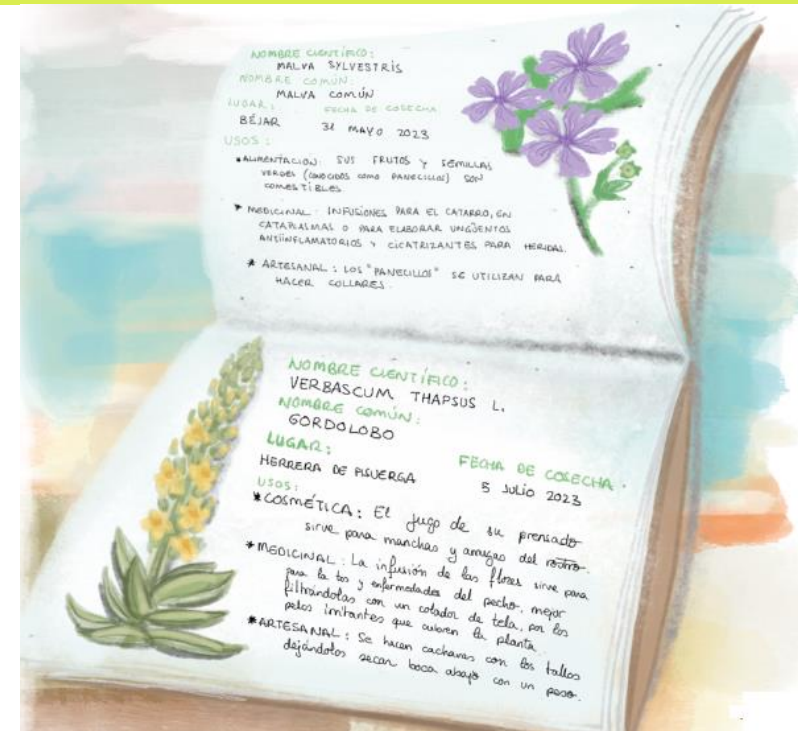 NOMBRE CIENTÍFICO:
MALVA SYLVESTRIS
NOMBRE COMÚN:
MALVA COMÚN
LUGAR: FECHA DE COSECHA
BÉJAR 31 MAYO 2023
USOS:
*ALIMENTACIÓN: SUS FRUTOS Y SEMILLAS
VERDES (CONOCIDOS COMO PANECILLOS) SON
COMESTIBLES.
* MEDICINAL: INFUSIONES PARA EL CATARRO, EN
CATAPLASMAS O PARA ELABORAR UNGÜENTOS
ANTIINFLAMATORIOS Y CICATRIZANTES PARA HERIDAS.
* ARTESANAL: LOS "PANECILLOS" SE UTILIZAN PARA
HACER COLLARES.
NOMBRE CIENTÍFICO:
VERBASCUM THAPSUS L.
NOMBRE COMÚN:
GORDOLOBO
LUGAR: FECHA DE COSECHA.
HERRERA DE PISUERGA 5 JULIO 2023
USOS:
*COSMÉTICA: El jugo de su prensado
sirve para manchas y arrugas del rostro.
*MEDICINAL: La infusión de las flores sirve para
para la tos y enfermedades del pecho, mejor
filtrándolas con un colador de tela, por los
pelos irritantes que cubren la planta.
*ARTESANAL: Se hacen cachavas con los tallos
dejándolos secar boca abajo con un peso.